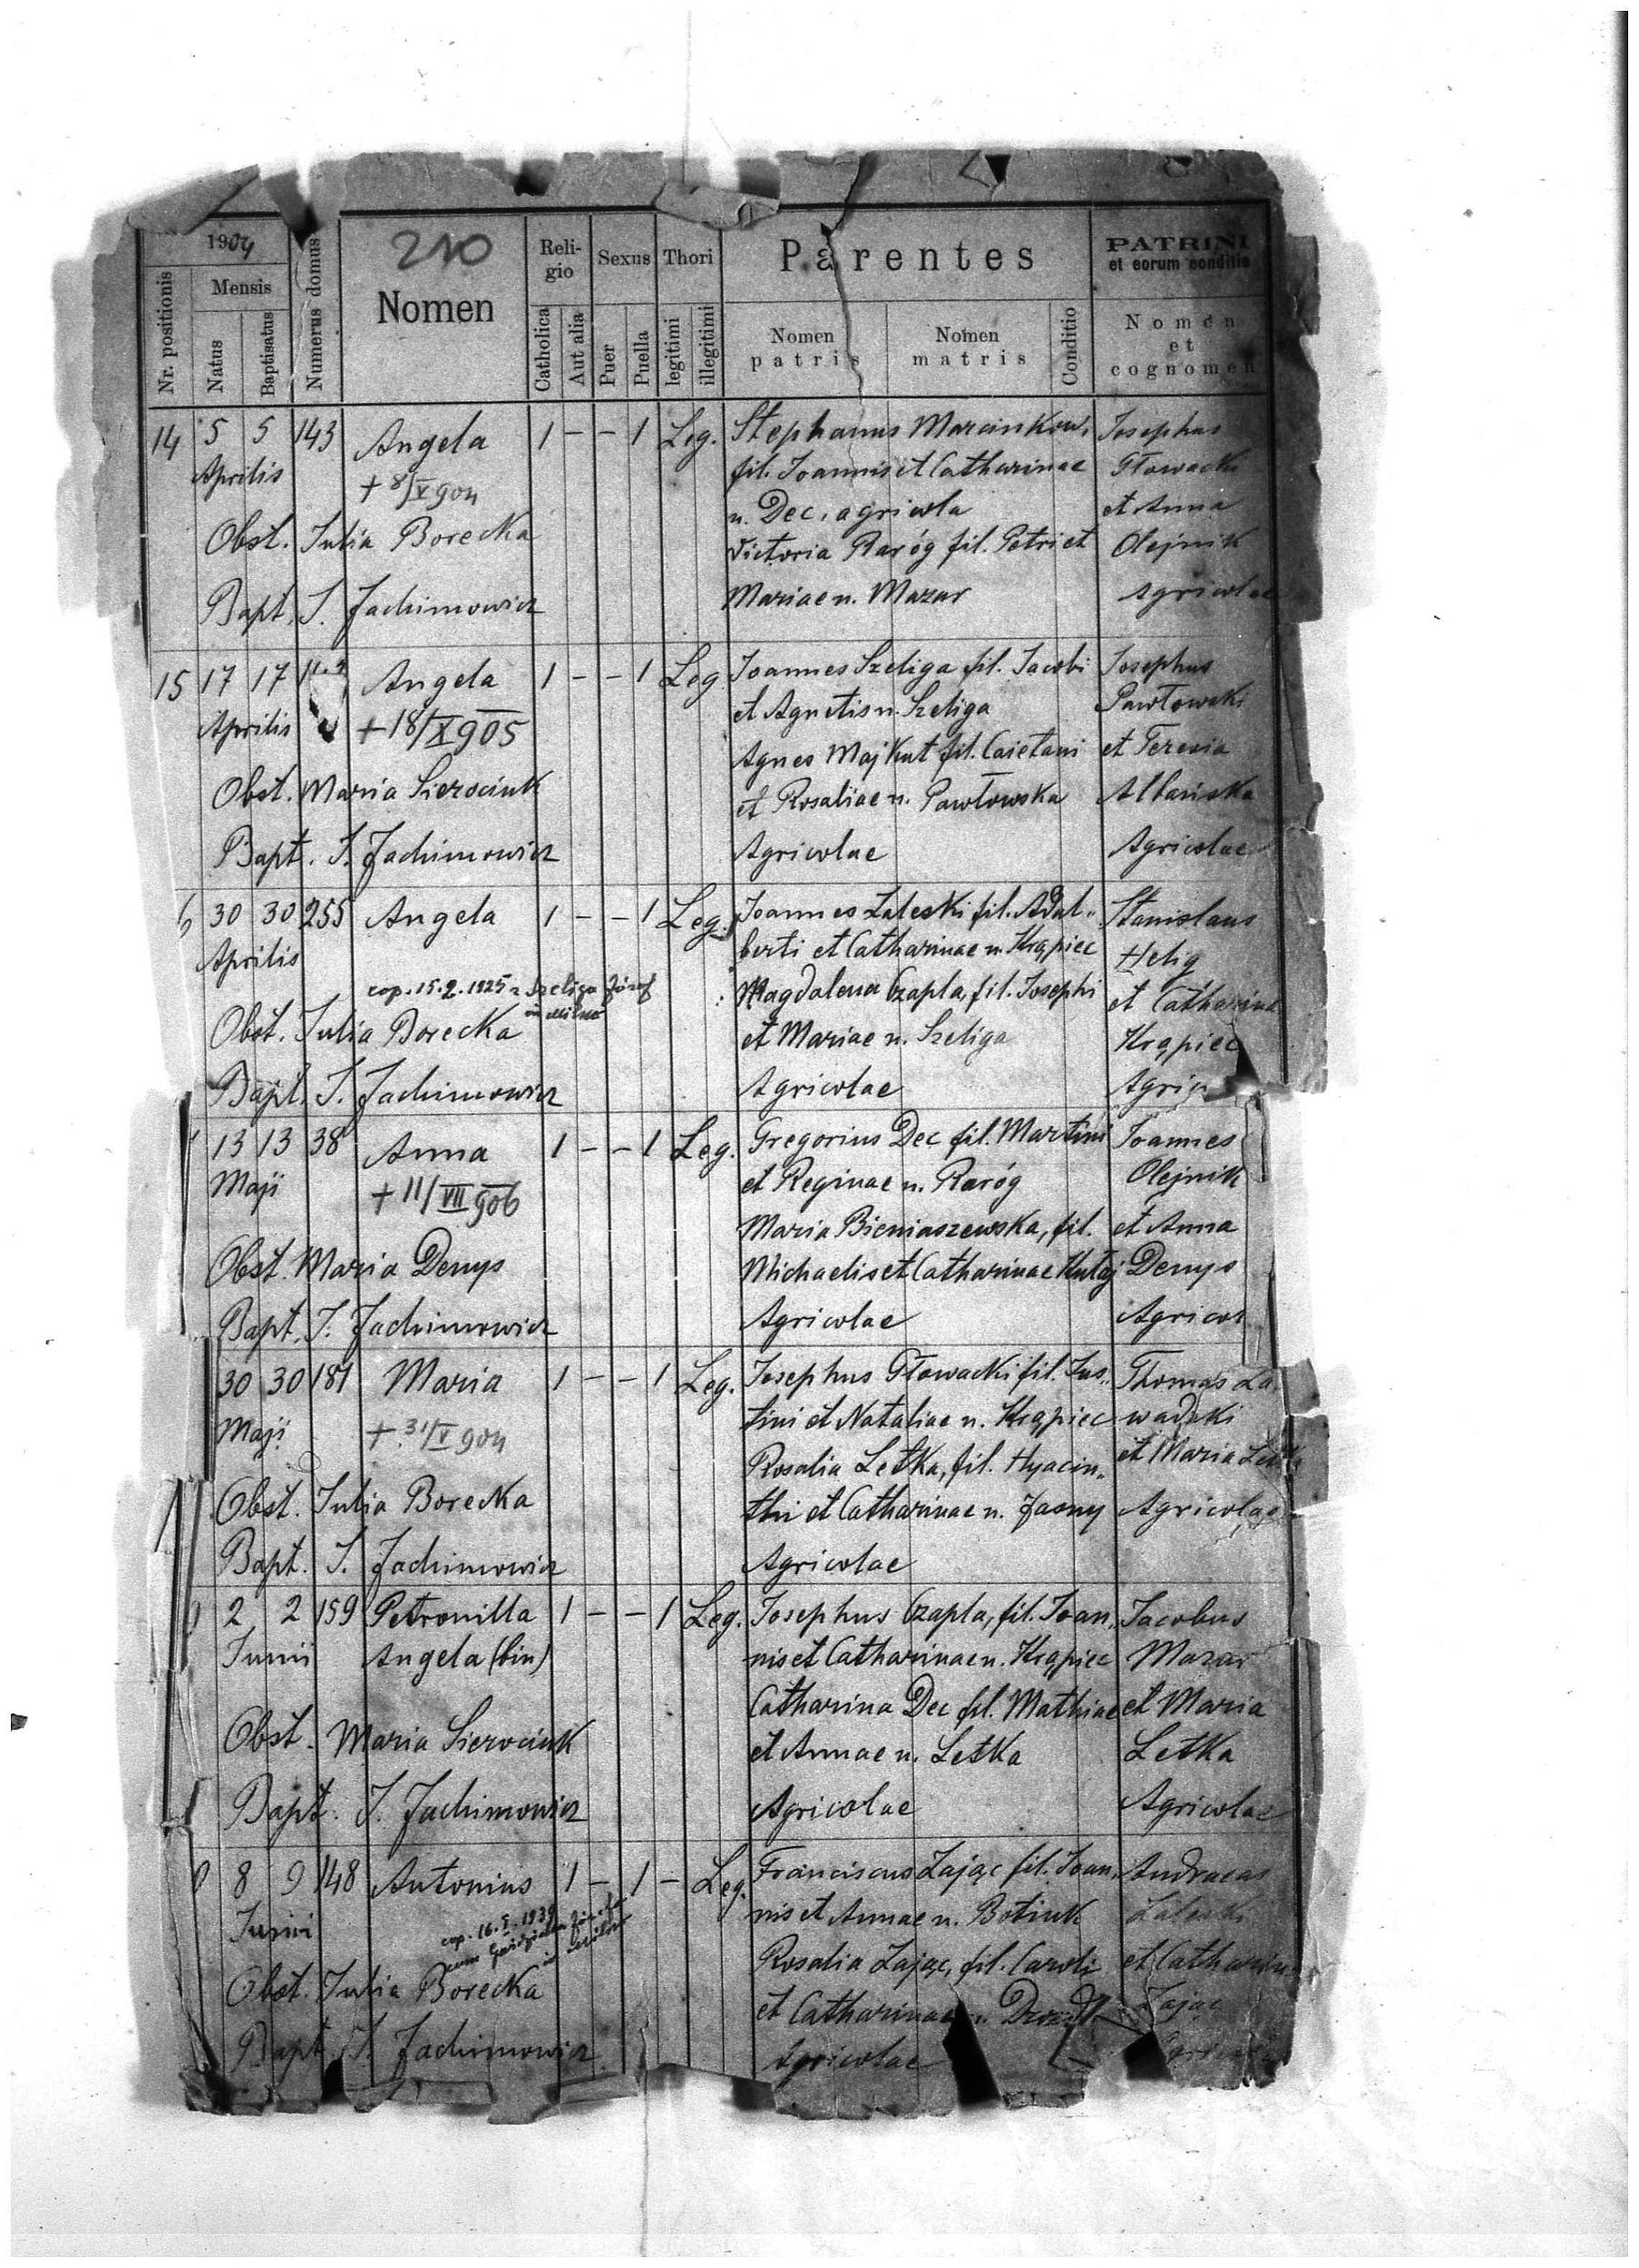 1904
210
Nr. positionis
Mensis
Natus
Baptisatus
Numerus domus
Nomen
Reli-
gio
Catholica
Aut alia
Sexus
Puer
Puella
Thori
legitimi
illegitimi
Parentes
Nomen
patris
Nomen
matris
Conditio
PATRINI
et eorum conditio
Nomen
et
cognomen
14 5 5 143 Angela 1 – – 1 Leg. Stephanus Marcinkow. Josephus
Aprilis + 8/V 904 fil. Joannis et Catharinae Głowacki
n. Dec, agricola et Anna
Obst. Julia Borecka Victoria Raróg fil. Petri et Olejnik
Bapt. J. Jachimowicz Mariae n. Mazur Agricolae
15 17 17 Angela 1 – – 1 Leg. Joannes Szeliga fil. Jacobi Josephus
Aprilis + 18/X 905 et Agnetis n. Szeliga Pawłowski
Agnes Majkut fil. Caietani et Teresia
Obst. Maria Sierociuk et Rosaliae n. Pawłowska Albańska
Bapt. J. Jachimowicz Agricolae Agricolae
6 30 30 255 Angela 1 – – 1 Leg. Joannes Zaleski fil. Adal- Stanislaus
Aprilis berti et Catharinae n. Krąpiec Helig
cop. 15.2.1925 z Szeliga Józef Magdalena Czapla, fil. Josephi et Catharina
in Milno
Obst. Julia Borecka et Mariae n. Szeliga Krąpiec
Bapt. J. Jachimowicz Agricolae Agric
13 13 38 Anna 1 – – 1 Leg. Gregorius Dec fil. Martini Joannes
Maji + 11/VII 906 et Reginae n. Raróg Olejnik
Maria Bieniaszewska, fil. et Anna
Obst. Maria Denys Michaelis et Catharinae Kutaj Denys
Bapt. J. Jachimowicz Agricolae Agricol
30 30 181 Maria 1 – – 1 Leg. Josephus Głowacki fil. Jus- Thomas Za
Maji + 31/V 904 tini et Nataliae n. Krąpiec wadzki
Rosalia Letka, fil. Hyacin- et Maria Letka
Obst. Julia Borecka thi et Catharinae n. Jasny Agricolae
Bapt. J. Jachimowicz Agricolae
2 2 159 Petronilla 1 – – 1 Leg. Josephus Czapla, fil. Joan- Jacobus
Junii Angela (bin) nis et Catharinae n. Krąpiec Mazur
Catharina Dec fil. Mathiae et Maria
Obst. Maria Sierociuk et Annae n. Letka Letka
Bapt. J. Jachimowicz Agricolae Agricolae
8 9 148 Antonius 1 – 1 – Leg. Franciscus Zając fil. Joan- Andraeas
Junii nis et Annae n. Botiuk Zaleski
cop. 16.I.1939
cum Józefa
in Milno
Rosalia Zając, fil. Caroli et Catharina
Obst. Julia Borecka et Catharinae n. Zając
Bapt. J. Jachimowicz Agricolae